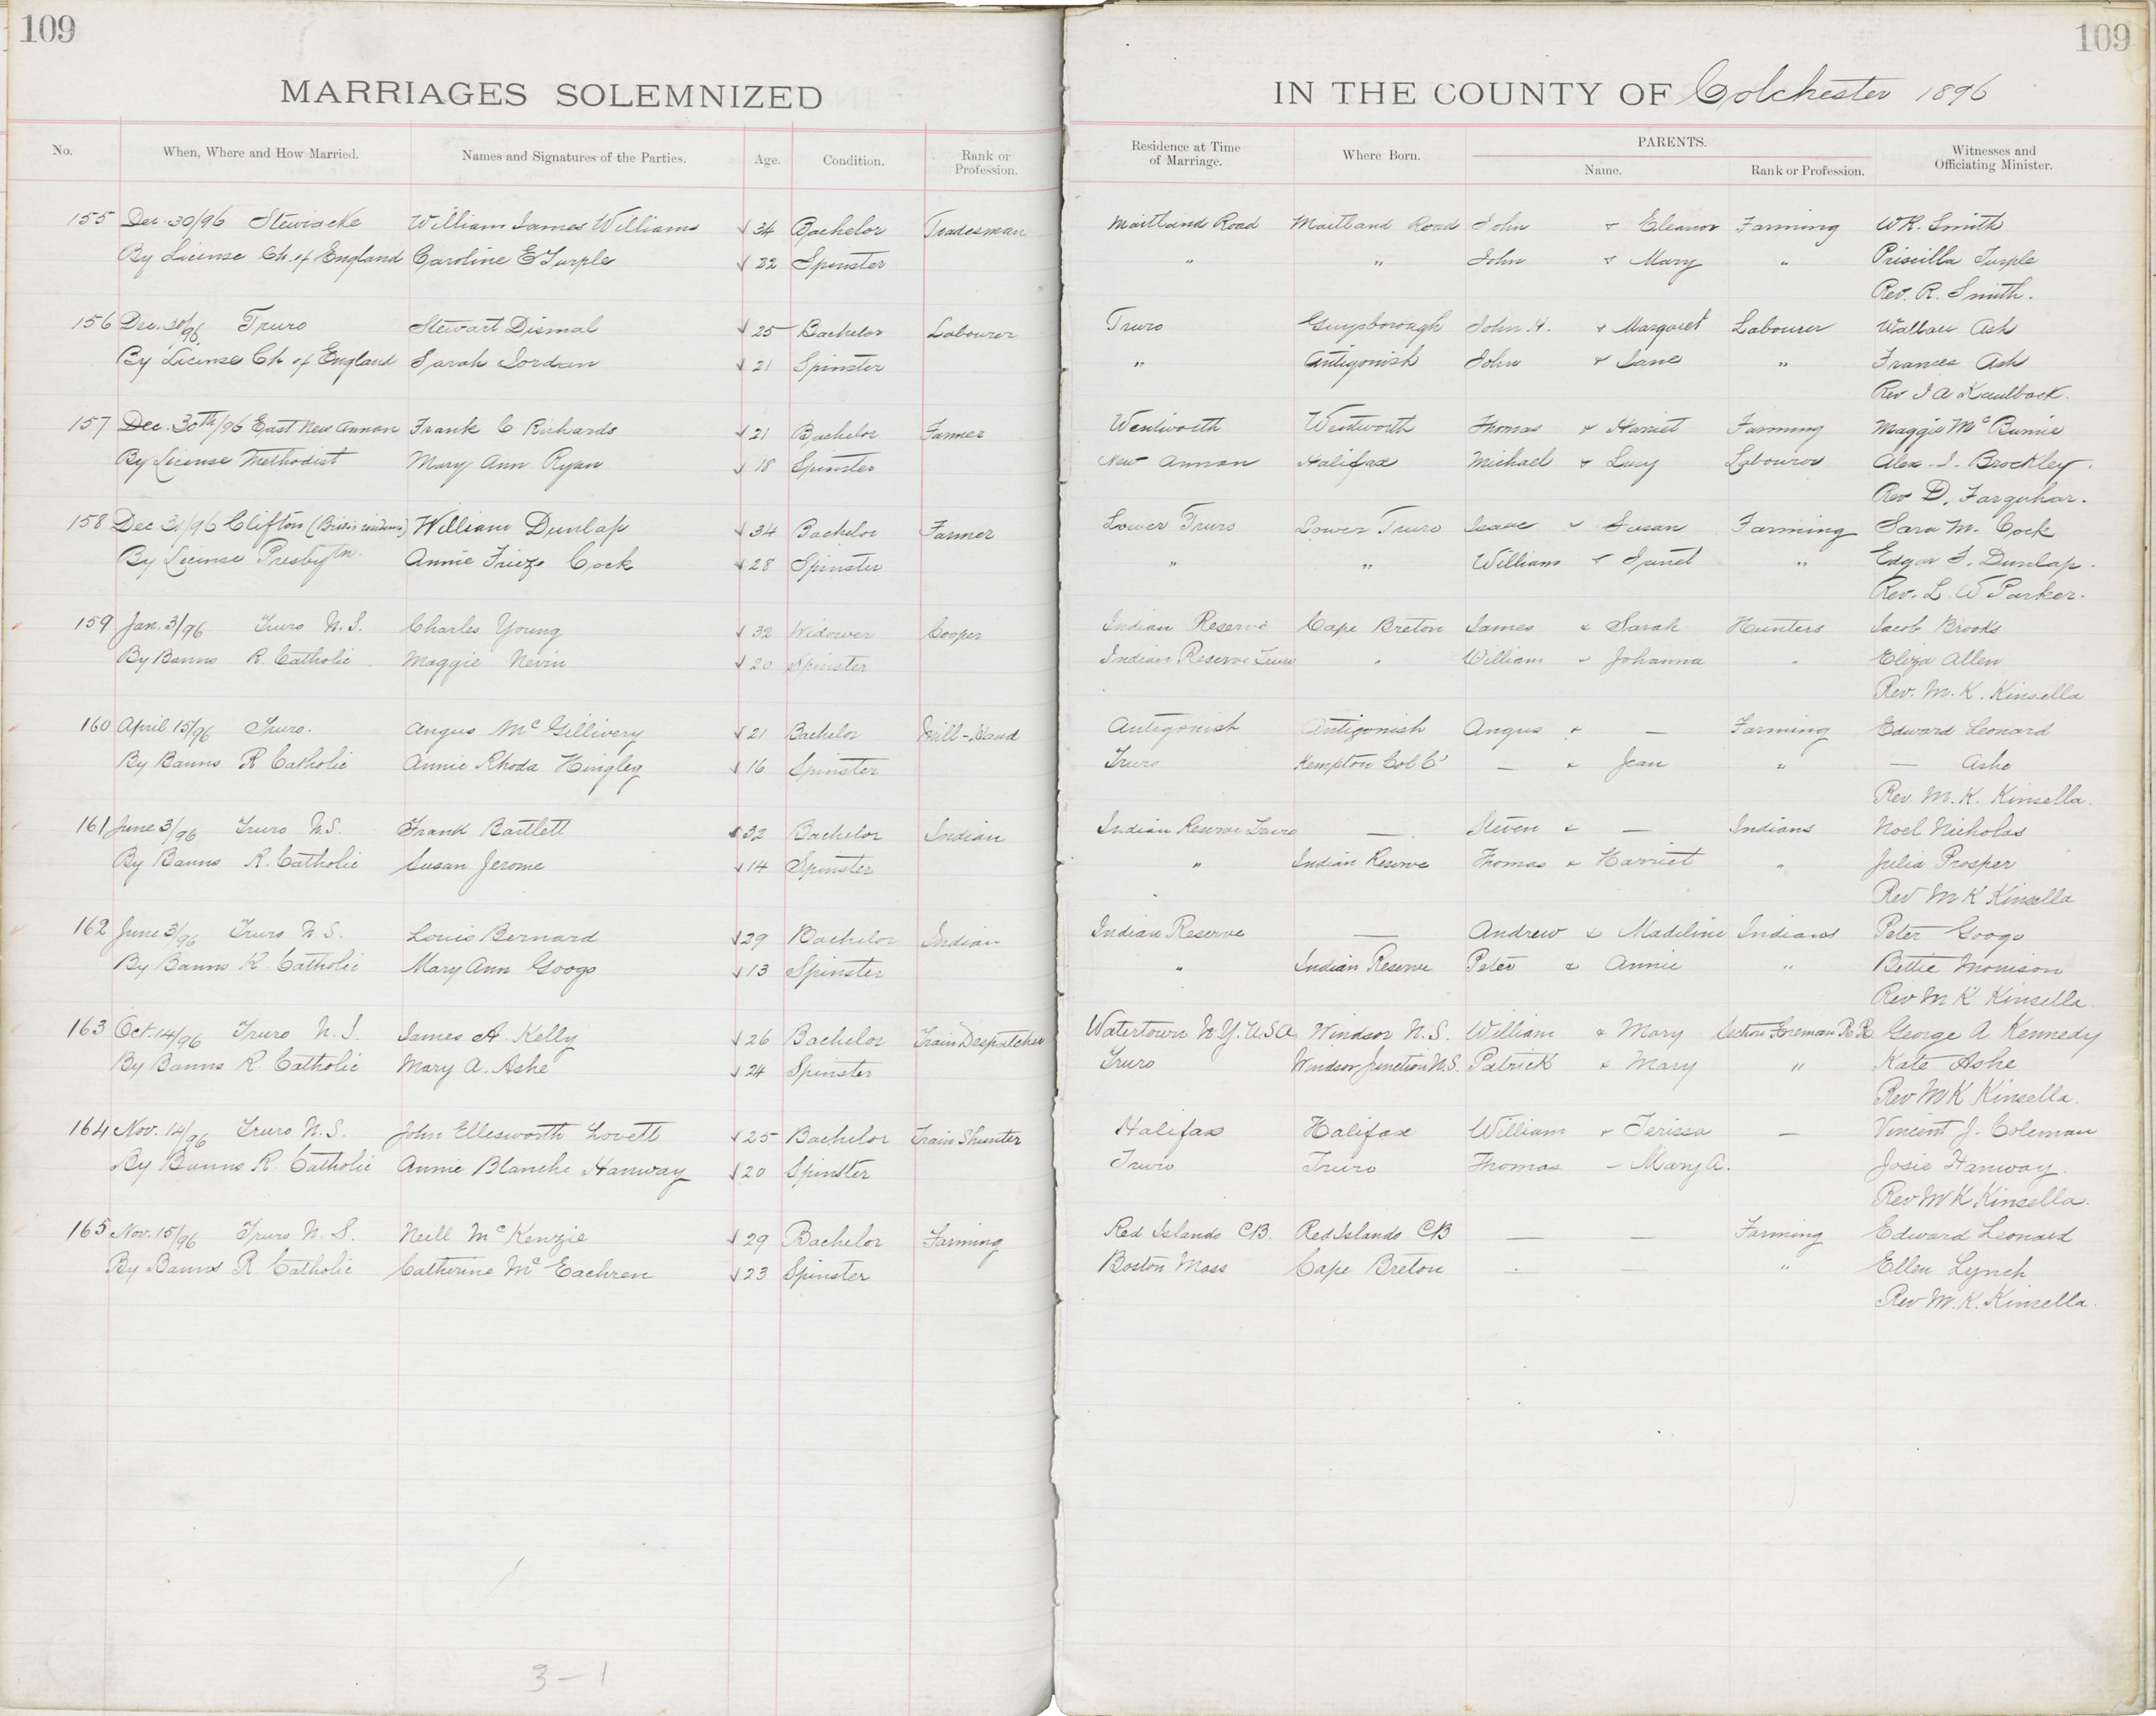 109
109
MARRIAGES SOLEMNIZED
IN THE COUNTY OF Colchester 1896
No. When, Where and How Married. Names and Signatures of the Parties. Age. Condition. Rank or Profession. Residence at Time of Marriage. Where Born. PARENTS. Name. Rank or Profession. Witnesses and Officiating Minister.
155 Dec. 30/96 Stewiacke William James Williams √ 34 Bachelor Tradesman Maitland Road Maitland Road John & Eleanor Farming W R. Smith
By License Ch. of England Caroline E Turple √ 22 Spinster " " John & Mary " Priscilla Turple
Rev. R. Smith.
156 Dec. 30/96 Truro Stewart Dismal √ 25 Bachelor Labourer Truro Guysborough John H. & Margaret Labourer Wallace Ash
By License Ch of England Sarah Jordan √ 21 Spinster " Antigonish John & Jane " Frances Ash
Rev J A Kaulback.
157 Dec. 30th/96 East New Annan Frank C Richards √ 21 Bachelor Farmer Wentworth Wentworth Thomas & Harriet Farming Maggie Mc Bunnie
By License Methodist Mary Ann Ryan √ 18 Spinster New Annan Halifax Michael & Lucy Labourer Alex. J. Brockley.
Rev D. Farquhar.
158 Dec 31/96 Clifton (Bride's residence) William Dunlap √ 34 Bachelor Farmer Lower Truro Lower Truro Isaac & Susan Farming Sara M. Cock
By License Presbytn. Annie Frieze Cock √ 28 Spinster " " William & Janet " Edgar S. Dunlap.
Rev. L. W Parker.
159 Jan. 3/96 Truro N.S. Charles Young √ 32 Widower Cooper Indian Reserve Cape Breton James & Sarah Hunters Jacob Brooks
By Banns R. Catholic Maggie Nevin √ 20 Spinster Indian Reserve Truro " William & Johanna " Eliza Allen
Rev. M. K. Kinsella
160 April 15/96 Truro. Angus Mc Gillivery √ 21 Bachelor Mill-Hand Antigonish Antigonish Angus & — Farming Edward Leonard
By Banns R Catholic Annie Rhoda Hingley √ 16 Spinster Truro Kempton Col C' — & Jean " — Ashe
Rev. M. K. Kinsella.
161 June 3/96 Truro N.S. Frank Bartlett √ 32 Bachelor Indian Indian Reserve Truro — Steven & — Indians Noel Nicholas
By Banns R. Catholic Susan Jerome √ 14 Spinster " Indian Reserve Thomas & Harriet " Julia Prosper
Rev M K Kinsella
162 June 3/96 Truro N S. Louis Bernard √ 29 Bachelor Indian Indian Reserve — Andrew & Madiline Indians Peter Googo
By Banns R. Catholic Mary Ann Googo √ 13 Spinster " Indian Reserve Peter & Annie " Bettie Morrison
Rev M K Kinsella.
163 Oct. 14/96 Truro N. S. James A. Kelly √ 26 Bachelor Train Despatcher Watertown N.Y. U.S.A. Windsor N. S. William & Mary Section Foreman R.R. George A Kennedy
By Banns R. Catholic Mary A. Ashe √ 24 Spinster Truro Windsor Junction N.S. Patrick & Mary " Kate Ashe
Rev M K Kinsella.
164 Nov. 14/96 Truro N.S. John Ellesworth Lovett √ 25 Bachelor Train Shunter Halifax Halifax William & Terissa — Vincent J. Coleman
By Banns R. Catholic Annie Blanche Hanway √ 20 Spinster Truro Truro Thomas – Mary A. Josie Hanway.
Rev M K Kinsella.
165 Nov. 15/96 Truro N. S. Neill Mc Kenzie √ 29 Bachelor Farming Red Islands C.B. Red Islands CB — — Farming Edward Leonard
By Banns R Catholic Catherine Mc Eachren √ 23 Spinster Boston Mass Cape Breton — " Ellen Lynch
Rev M. K. Kinsella.
3–1